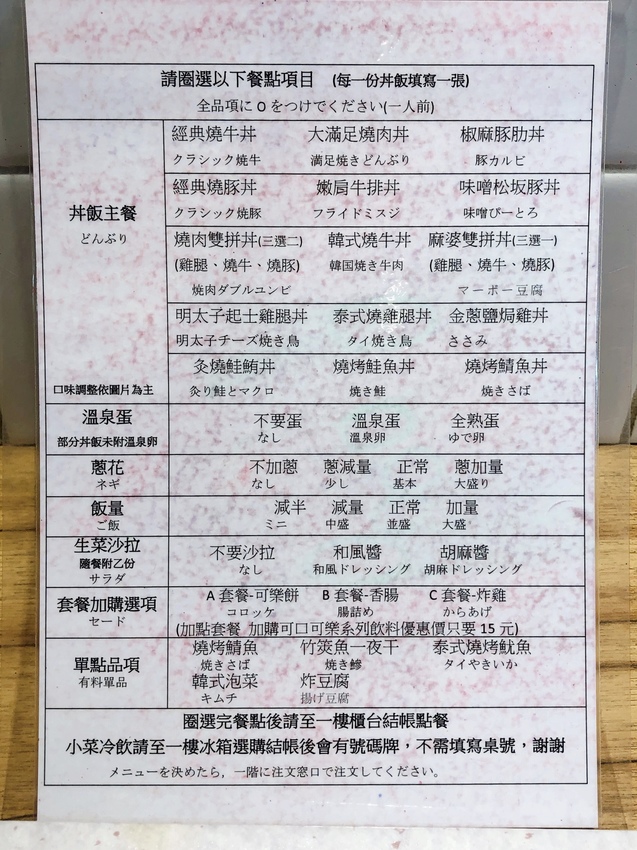 請圈選以下餐點項目 (每一份丼飯填寫一張)
全品項に O をつけでください(一人前)
丼飯主餐
どんぶり
口味調整依圖片為主
經典燒牛丼 大滿足燒肉丼 椒麻豚肋丼
クラシック焼牛 満足焼きどんぶり 豚カルビ
經典燒豚丼 嫩肩牛排丼 味噌松坂豚丼
クラシック焼豚 フライドミスジ 味噌ぴーとろ
燒肉雙拼丼(三選二) 韓式燒牛丼 麻婆雙拼丼(三選一)
(雞腿、燒牛、燒豚) 韓国焼き牛肉 (雞腿、燒牛、燒豚)
焼肉ダブルユンビ マーボー豆腐
明太子起士雞腿丼 泰式燒雞腿丼 金蔥鹽焗雞丼
明太子チーズ焼き鳥 タイ焼き鳥 ささみ
炙燒鮭鮪丼 燒烤鮭魚丼 燒烤鯖魚丼
炙り鮭とマクロ 焼き鮭 焼きさば
溫泉蛋 不要蛋 溫泉蛋 全熟蛋
部分丼飯未附溫泉卵 なし 溫泉卵 ゆで卵
蔥花 不加蔥 蔥減量 正常 蔥加量
ネギ なし 少し 基本 大盛り
飯量 減半 減量 正常 加量
ご飯 ミニ 中盛 並盛 大盛
生菜沙拉 不要沙拉 和風醬 胡麻醬
隨餐附乙份 なし 和風ドレッシング 胡麻ドレッシング
サラダ
套餐加購選項 A 套餐-可樂餅 B 套餐-香腸 C 套餐-炸雞
セード コロッケ 腸詰め からあげ
(加點套餐 加購可口可樂系列飲料優惠價只要 15 元)
單點品項 燒烤鯖魚 竹筴魚一夜干 泰式燒烤魷魚
有料單品 焼きさば 焼き鰺 タイやきいか
韓式泡菜 炸豆腐
キムチ 揚げ豆腐
圈選完餐點後請至一樓櫃台結帳點餐
小菜冷飲請至一樓冰箱選購結帳後會有號碼牌，不需填寫桌號，謝謝
メニューを決めたら，一階に注文窓口で注文してください。